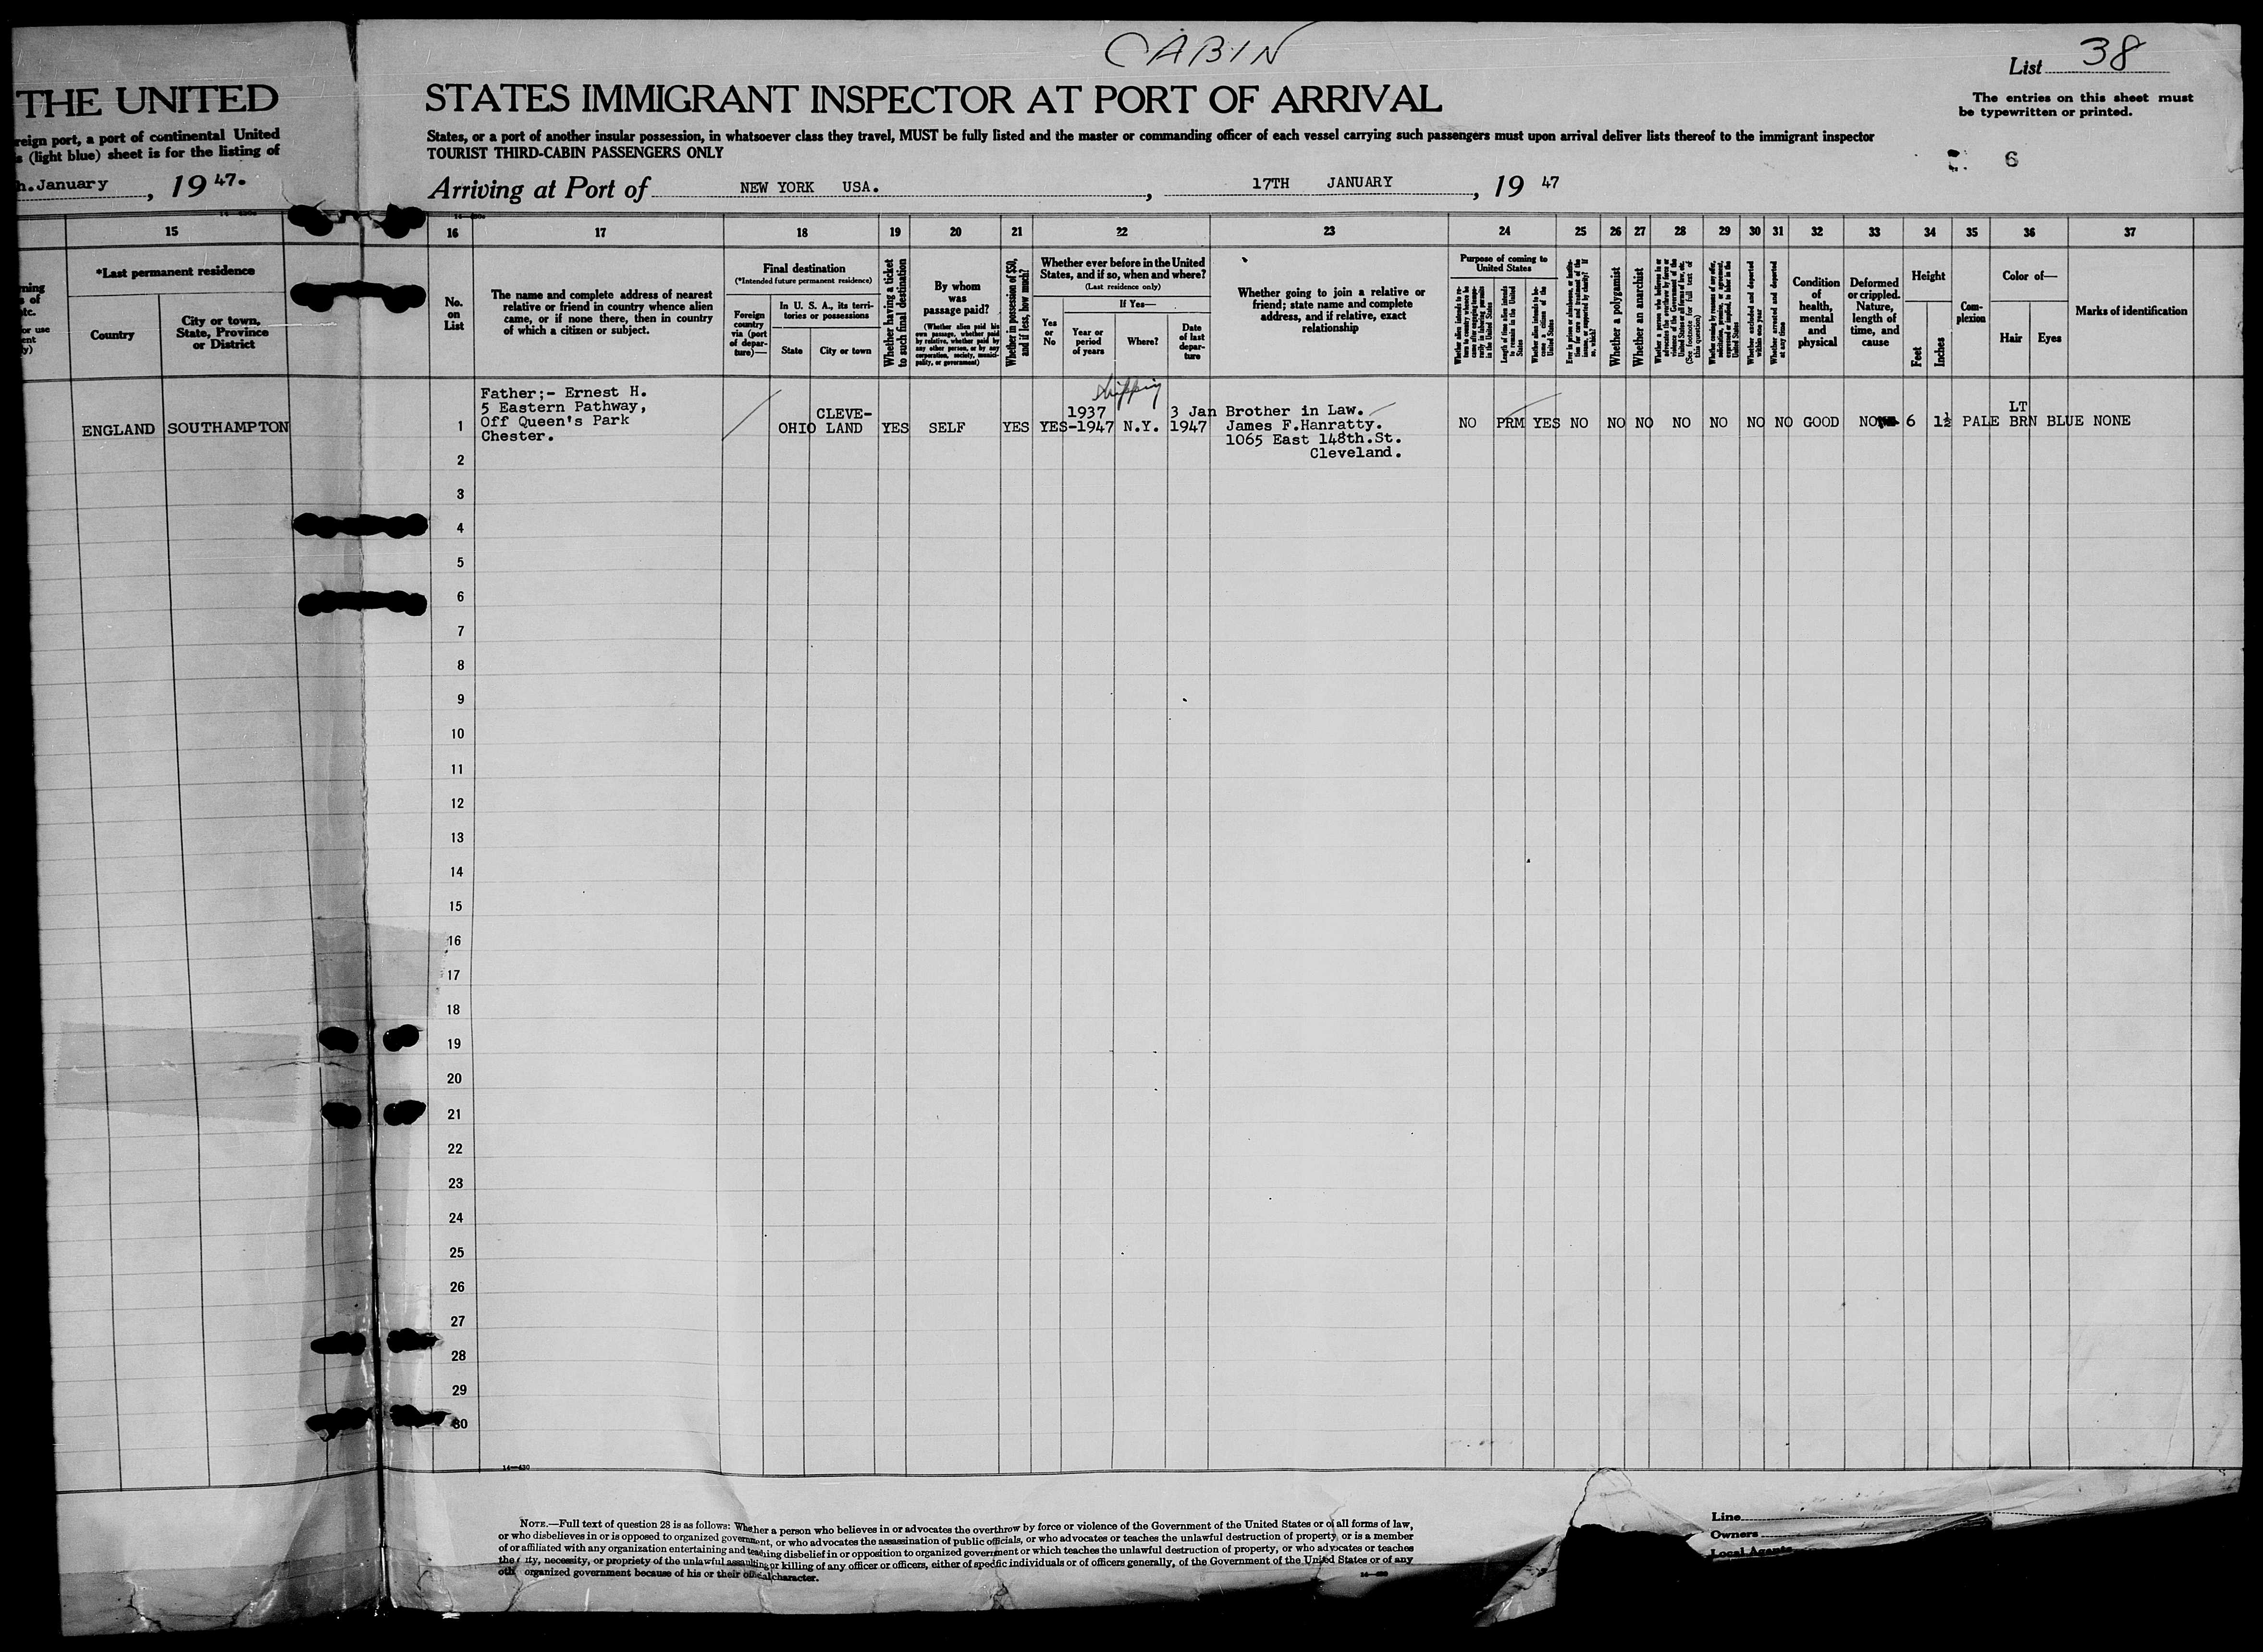 CABIN
List 38
THE UNITED
STATES IMMIGRANT INSPECTOR AT PORT OF ARRIVAL
The entries on this sheet must
be typewritten or printed.
reign port, a port of continental United
States, or a port of another insular possession, in whatsoever class they travel, MUST be fully listed and the master or commanding officer of each vessel carrying such passengers must upon arrival deliver lists thereof to the immigrant inspector
s (light blue) sheet is for the listing of
TOURIST THIRD-CABIN PASSENGERS ONLY
6
h.January, 19 47.
Arriving at Port of NEW YORK USA., 17TH JANUARY, 19 47
15 16 17 18 19 20 21 22 23 24 25 26 27 28 29 30 31 32 33 34 35 36 37
*Last permanent residence
Country
City or town,
State, Province
or District
No.
on
List
The name and complete address of nearest
relative or friend in country whence alien
came, or if none there, then in country
of which a citizen or subject.
Final destination
(*Intended future permanent residence)
Foreign
country
via (port
of depar-
ture)—
In U. S. A., its terri-
tories or possessions
State
City or town
Whether having a ticket
to such final destination
By whom
was
passage paid?
(Whether alien paid his
own passage, whether paid
by relative, whether paid by
any other person, or by any
corporation, society, munici-
pality, or government)
Whether in possession of $50,
and if less, how much?
Whether ever before in the United
States, and if so, when and where?
(Last residence only)
Yes
or
No
If Yes—
Year or
period
of years
Where?
Date
of last
depar-
ture
Whether going to join a relative or
friend; state name and complete
address, and if relative, exact
relationship
Purpose of coming to
United States
Whether a polygamist
Whether an anarchist
Condition
of
health,
mental
and
physical
Deformed
or crippled.
Nature,
length of
time, and
cause
Height
Feet
Inches
Com-
plexion
Color of—
Hair
Eyes
Marks of identification
ENGLAND SOUTHAMPTON
1
Father;- Ernest H.
5 Eastern Pathway,
Off Queen's Park
Chester.
OHIO
CLEVE-
LAND
YES SELF YES YES
shipping
1937
-1947 N.Y.
3 Jan
1947
Brother in Law.
James F.Hanratty.
1065 East 148th.St.
Cleveland.
NO PRM YES NO NO NO NO NO NO NO GOOD NO 6 1½ PALE
LT
BRN BLUE NONE
2
3
4
5
6
7
8
9
10
11
12
13
14
15
16
17
18
19
20
21
22
23
24
25
26
27
28
29
30
14—430
NOTE.—Full text of question 28 is as follows: Whether a person who believes in or advocates the overthrow by force or violence of the Government of the United States or of all forms of law,
or who disbelieves in or is opposed to organized government, or who advocates the assassination of public officials, or who advocates or teaches the unlawful destruction of property, or is a member
of or affiliated with any organization entertaining and teaching disbelief in or opposition to organized government or which teaches the unlawful destruction of property, or who advocates or teaches
the uty, necessity, or propriety of the unlawful assaulting or killing of any officer or officers, either of specific individuals or of officers generally, of the Government of the United States or of any
oth organized government because of his or their official character.
Line
Owners
Local Agents